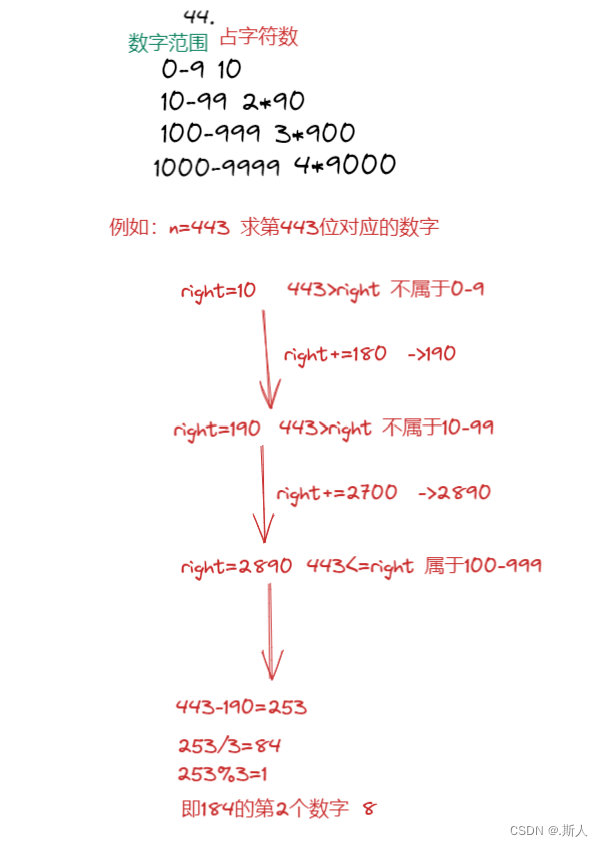 44.
数字范围 占字符数
0-9 10
10-99 2*90
100-999 3*900
1000-9999 4*9000
例如：n=443 求第443位对应的数字
right=10 443>right 不属于0-9
right+=180 ->190
right=190 443>right 不属于10-99
right+=2700 ->2890
right=2890 443<=right 属于100-999
443-190=253
253/3=84
253%3=1
即184的第2个数字 8
CSDN @.斯人